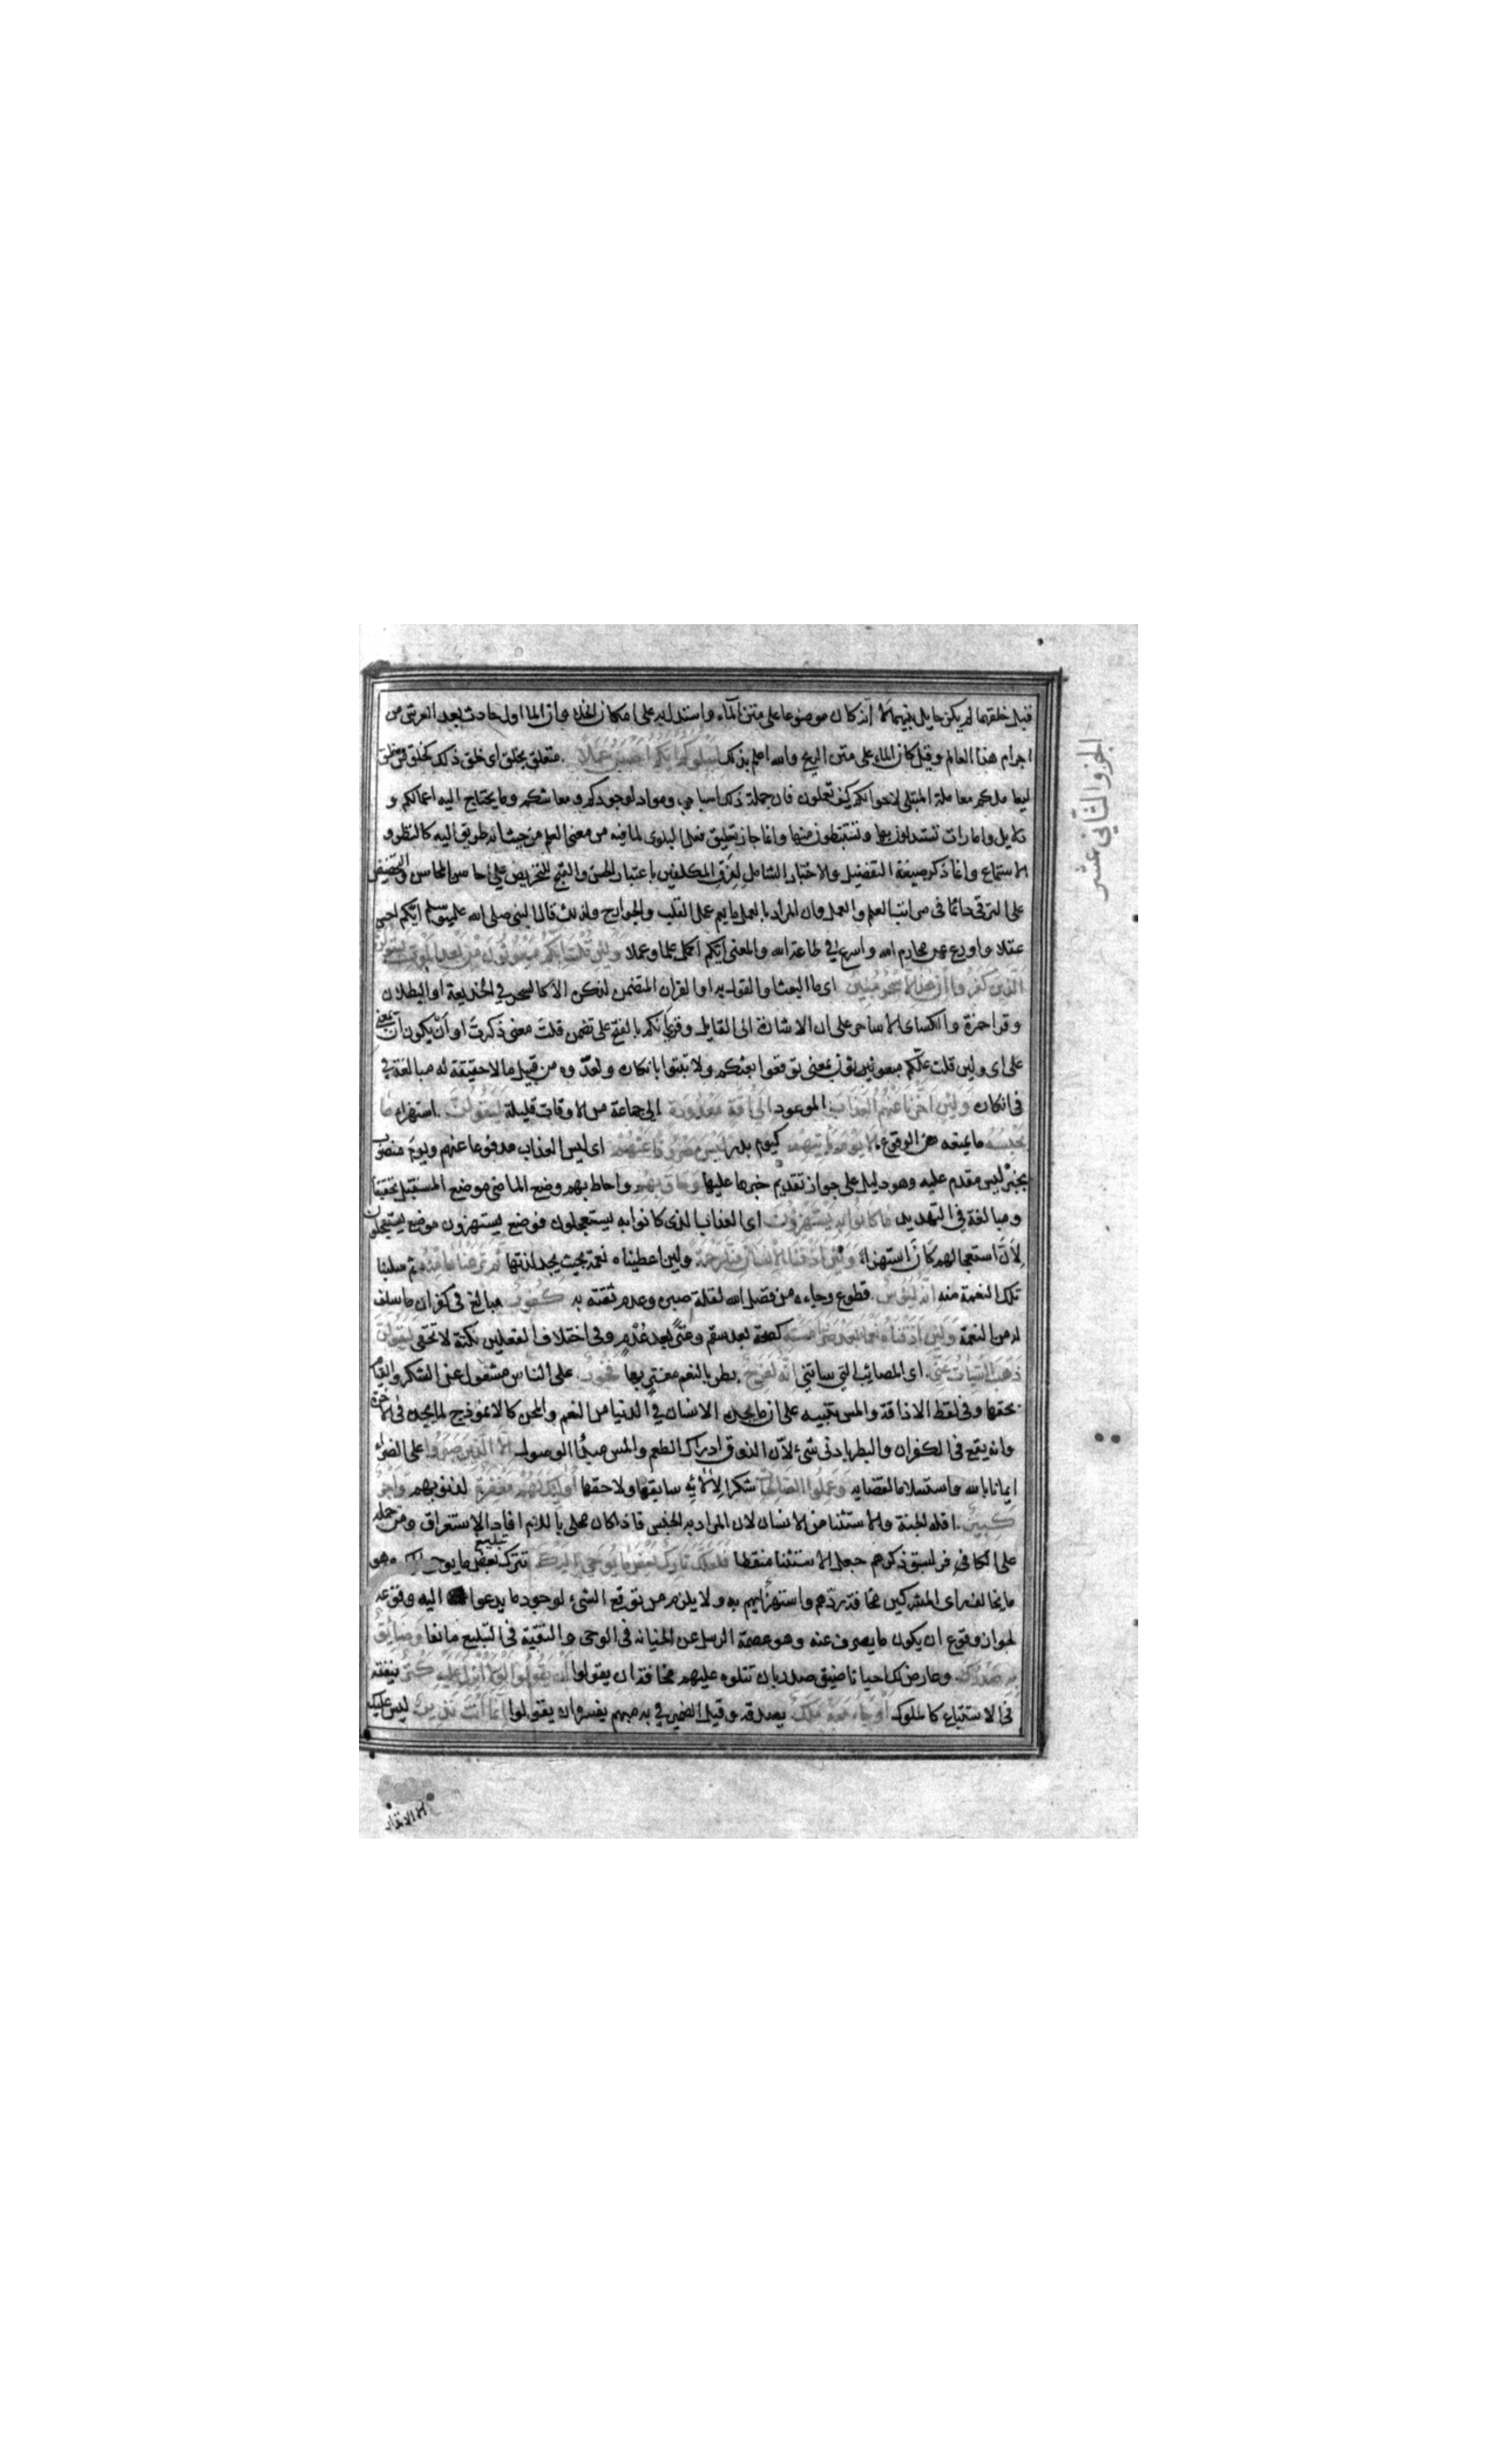 الجزو الثاني عشر
قبل خلقهما لم يكن حايل بينهما لا انه كان موضوعا على متن الماء واستدل به على امكان الخلاء وان الماء اول حادث بعد العرش من
اجرام هذا العالم وقيل كان الماء على متن الريح والله اعلم بذلك ليبلوكم ايكم احسن عملا متعلق بخلق اى خلق ذلك كخلق من خلق
ليعاملكم معاملة المبتلى لاحوالكم كيف تعملون فان جملة ذلك اسباب ومواد لوجودكم ومعاشكم وما يحتاج اليه اعمالكم و
دلايل وامارات تستدلون بها وتستنبطون منها وانما جاز تعليق فعل البلوى لما فيه من معنى العلم من حيث انه طريق اليه كالنظر و
الاستماع وانما ذكر صيغة التفضيل والاختبار الشامل لفرق المكلفين باعتبار الحسن والقبح للتحريض على احاسن المحاسن والتحضيض
على الترقى دائما فى مراتب العلم والعمل وان المراد بالعمل ما يعم عمل القلب والجوارح ولذلك قال النبى صلى الله عليه وسلم ايكم احسن
عقلا واورع عن محارم الله واسرع في طاعة الله والمعنى ايكم اكمل علما وعملا ولئن قلت انكم مبعوثون من بعد الموت ليقولن
الذين كفروا ان هذا الا سحر مبين اى ما البعث او القول به او القران المتضمن لذكره الا كالسحر في الخديعة او البطلان
وقرا حمزة والكسائى الا ساحر على ان الاشارة الى القايل وقرئ انكم بالفتح على تضمن قلت معنى ذكرت او ان يكون ان بمعنى
على اى ولين قلت علكم مبعوثون بمعنى توقعوا بعثكم ولا تبتوا بانكاره لعدوه من قبيل ما لا حقيقة له مبالغة في
فى انكاره ولين اخرنا عنهم العذاب الموعود الى امة معدودة الى جماعة من الاوقات قليلة ليقولن استهزاء ما
يحبسه ما يمنعه من الوقوع الا يوم ياتيهم كيوم بدر ليس مصروفا عنهم اى ليس العذاب مدفوعا عنهم ويوم منصوب
بخبر ليس مقدم عليه وهو دليل على جواز تقديم خبرها عليها وحاق بهم واحاط بهم وضع الماضى موضع المستقبل تحقيقا
ومبالغة فى التهديد ما كانوا به يستهزؤن اى العذاب الذى كانوا به يستعجلون فوضع يستهزون موضع يستعجلون
لان استعجالهم كان استهزاء ولئن اذقنا الانسان منا رحمة ولين اعطيناه نعمة بحيث يجد لذتها ثم نزعناها منه ثم سلبنا
تلك النعمة منه انه ليؤس قطوع رجاءه من فضل الله لقلة صبره وعدم ثقته به كفور مبالغ فى كفران ما سلف
له من النعمة ولئن اذقناه نعماء بعد ضراء مسته كصحة بعد سقم وغنى بعد عدم وفى اختلاف الفعلين نكتة لا تخفى ليقولن
ذهب السيات عنى اى المصائب التي ساتنى انه لفرح بطر بالنعم مغتر بها فخور على الناس مشغول عن الشكر والقيام
بحقها وفى لفظ الاذاقة والمس تنبيه على ان ما يجده الانسان في الدنيا من النعم والمحن كالانموذج لما يجده فى الاخرة
وانه يقع فى الكفران والبطر بادنى شئ لان الذوق ادراك الطعم والمس مبدأ الوصول الا الذين صبروا على الضراء
ايمانا بالله واستسلاما لقضايه وعملوا الصالحات شكرا لالائه سابقها ولاحقها اوليك لهم مغفرة لذنوبهم واجر
كبير اقله الجنة والاستثنا من الانسان لان المراد به الجنس فاذا كان محلى باللام افاد الاستغراق ومن حمله
على الكافر لسبق ذكرهم جعل الاستثنا منقطعا فلعلك تارك بعض ما يوحى اليك تترك تبليغ بعض ما يوحى اليك وهو
ما يخالف راى المشركين مخافة ردهم واستهزايهم به ولا يلزم من توقع الشئ لوجود ما يدعوا اليه وقوعه
لجواز وقوع ان يكون ما يصرف عنه وهو عصمة الرسل عن الخيانة فى الوحى والتقية فى التبليغ مانعا وضايق
به صدرك وعارض لك احيانا ضيق صدر بان تتلوه عليهم مخافة ان يقولوا ان يقولوا لولا انزل عليه كنز ينفقه
فى الاستتباع كالملوك او جاء معه ملك يصدقه وقيل الضمير في به مبهم يفسره ان يقولوا انما انت نذير ليس عليك
الا الانذار